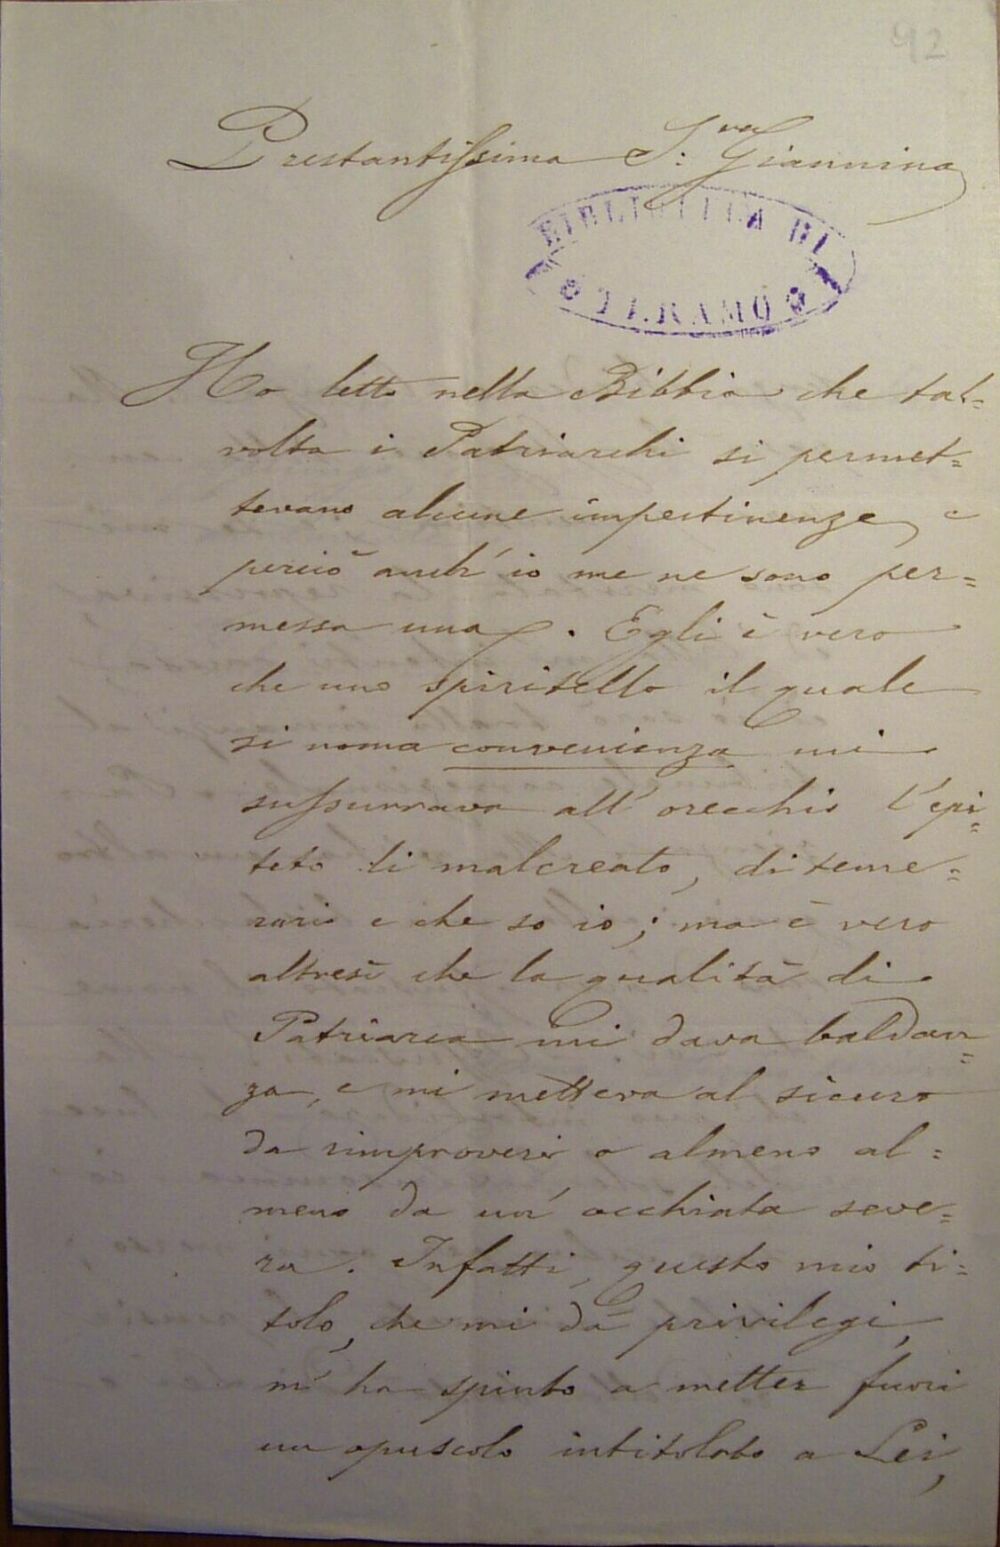 42
Prestantissima S.ra Giannina
BIBLIOTECA DI
TERAMO
Ho letto nella Bibbia che tal=
volta i Patriarchi si permet=
tevano alcune impertinenze, e
perciò anch'io me ne sono per=
messa una. Egli è vero
che uno spiritello il quale
si noma convenienza mi
sussurrava all'orecchio l'epi=
teto di malcreato, di teme=
rario e che so io; ma è vero
altresì che la qualità di
Patriarca mi dava baldan=
za, e mi metteva al sicuro
da rimproveri o almeno al=
meno da un'occhiata seve=
ra. Infatti, questo mio ti=
tolo, che mi dà privilegi,
m'ha spinto a metter fuori
un opuscolo intitolato a Lei,